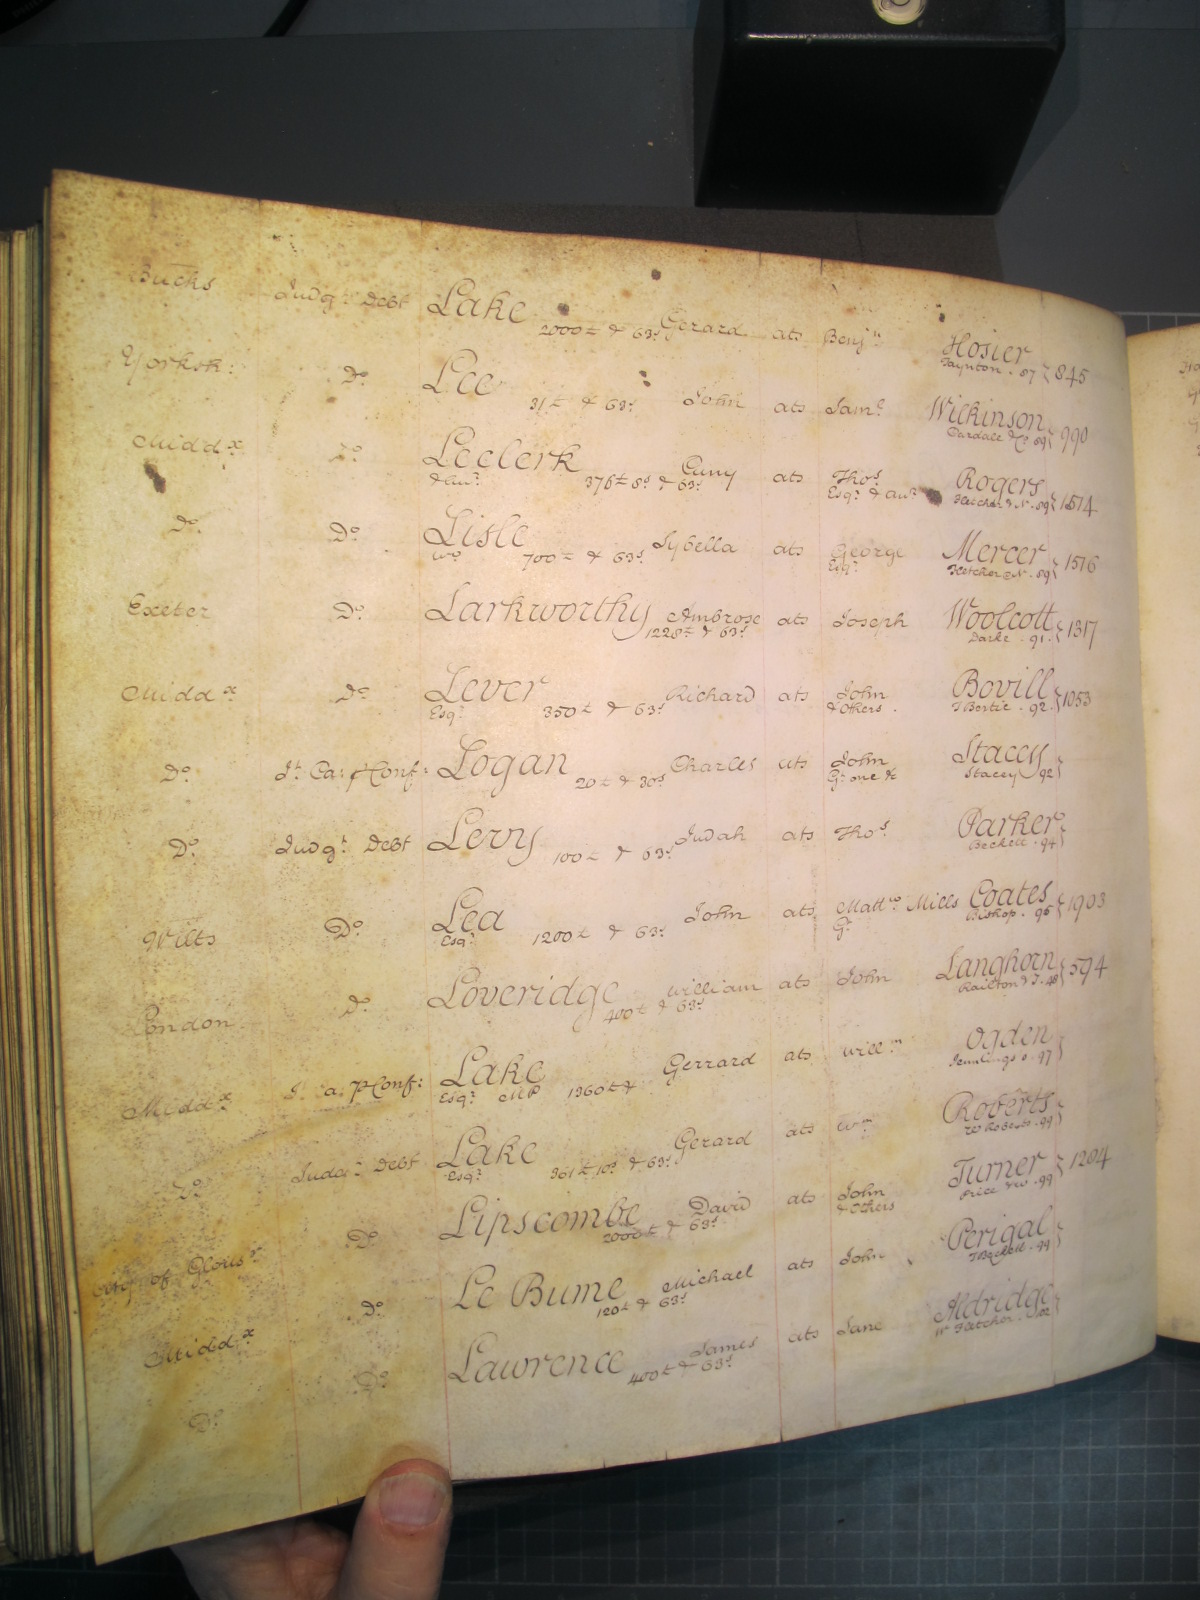 Bucks Judgt Debt Lake Gerard ats Benjn Hosier 845
2000£ & 63s Taynton . 87
Yorksh: Do Lee John ats Saml Wilkinson 990
31£ & 63s Cardale & Co 89
Middx Do Leclerk Cuny ats Thos Rogers 1514
& anr 376£ 8s & 63s Esqr & anr Fletcher & N . 89
Do Do Lisle Sybella ats George Mercer 1576
wo 700£ & 63s Esqr Fletcher & N . 89
Exeter Do Larkworthy Ambrose ats Joseph Woolcott 1317
1228£ & 63s Darke . 91
Middx Do Lever Richard ats John Bovill 1053
Esqr 350£ & 63s & Others . T Bertie . 92
Do Jt Ca: p Conf: Logan Charles ats John Stacey
20£ & 30s Gt one &c Stacey 92
Do Judgt Debt Levy Judah ats Thos Parker
100£ & 63s Beckett . 94
Wilts Do Lea John ats Mattw Mills Coates 1903
Esqr 1200£ & 63s Gt Bishop . 96
London Do Loveridge William ats John Langhorn 594
400£ & 63s Railton & J . 48
Middx J. Ca. p Conf: Lake Gerrard ats Willm Ogden
Esqr MP 1360£ & Jennings . 97
Do Judgt Debt Lake Gerard ats Wm Roberts
Esqr 361£ 10s & 63s W Roberts . 99
Do Lipscombe David ats John Turner 1204
2000£ & 63s & Others Price & W . 99
City of Gloustr Do Le Bume Michael ats John Perigal
120£ & 63s T Beckett . 99
Middx Do Lawrence James ats Jane Aldridge
Do 400£ & 63s W Fletcher .